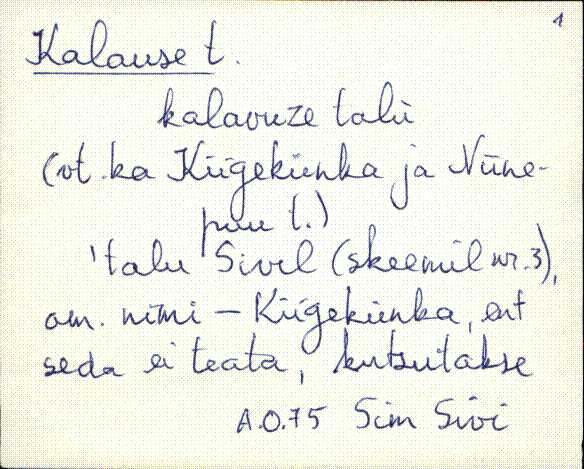 1
Kalause t.
kalauze talu
(vt. ka Kiigekünka ja Niine-
puu t.)
'talu Sivil (skeemil nr. 3),
am. nimi – Kiigekünka, ent
seda ei teata, kutsutakse
A.O. 75 Sim Sivi